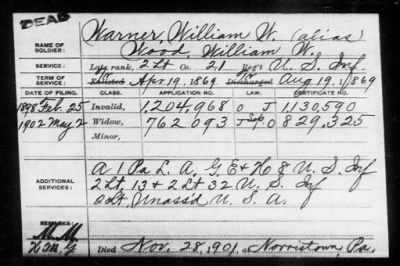 DEAD
Warner, William W. (alias)
NAME OF SOLDIER: Wood William W.
SERVICE: Late rank, 2 Lt Co. 21 Reg't U. S. Inf.
TERM OF SERVICE: Enlisted Apr. 19, 1869 Discharged Aug. 19, 1869
DATE OF FILING. CLASS. APPLICATION NO. LAW. CERTIFICATE NO.
1898 Feb. 25 Invalid, 1,204,968 O J 1,130,590
1902 May 2 Widow, 762,093 O 829,325
Minor,
ADDITIONAL SERVICES: A 1 Pa L. A. G, E & H 8 U. S. Inf
2 Lt, 13 & 2 Lt 32 U. S. Inf
2 Lt, Unass'd U. S. A.
REMARKS:
Died Nov. 28, 1901, at Norristown, Pa.